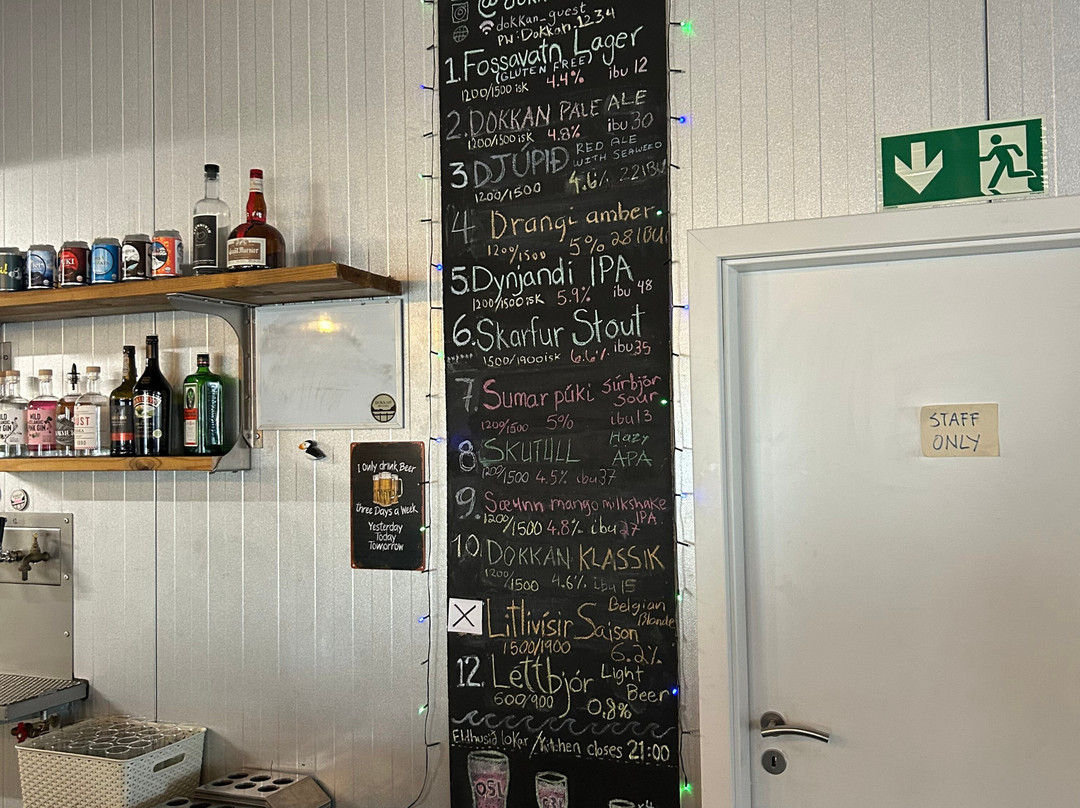 dokkan_guest
PW: Dokkan_1234
1. Fossavatn Lager
(GLUTEN FREE)
1200/1500 isk 4.4% ibu 12
2. DOKKAN PALE ALE
1200/1500 isk 4.8% ibu 30
3 DJÚPIÐ RED ALE
WITH SEAWEED
1200/1500 4.6% 22IBU
4 Drangi amber
1200/1500 5% 28IBU
5. Dynjandi IPA
1200/1500 isk 5.9% ibu 48
6. Skarfur Stout
1500/1900isk 6.6% ibu 35
7. Sumar púki súrbjór
Sour
1200/1500 5% ibu13
8 SKUTULL Hazy
APA
1200/1500 4.5% ibu37
9. Sæunn mango milkshake
IPA
1200/1500 4.8% ibu 27
10. DOKKAN KLASSIK
1200/1500 4.6% ibu 15
X Litlivísir Saison Belgian
Blonde
1500/1900 6.2%
12. Léttbjór Light
Beer
600/900 0.8%
Eldhúsið lokar / Kitchen closes 21:00
I Only drink Beer
three Days a Week
Yesterday
Today
Tomorrow
STAFF
ONLY